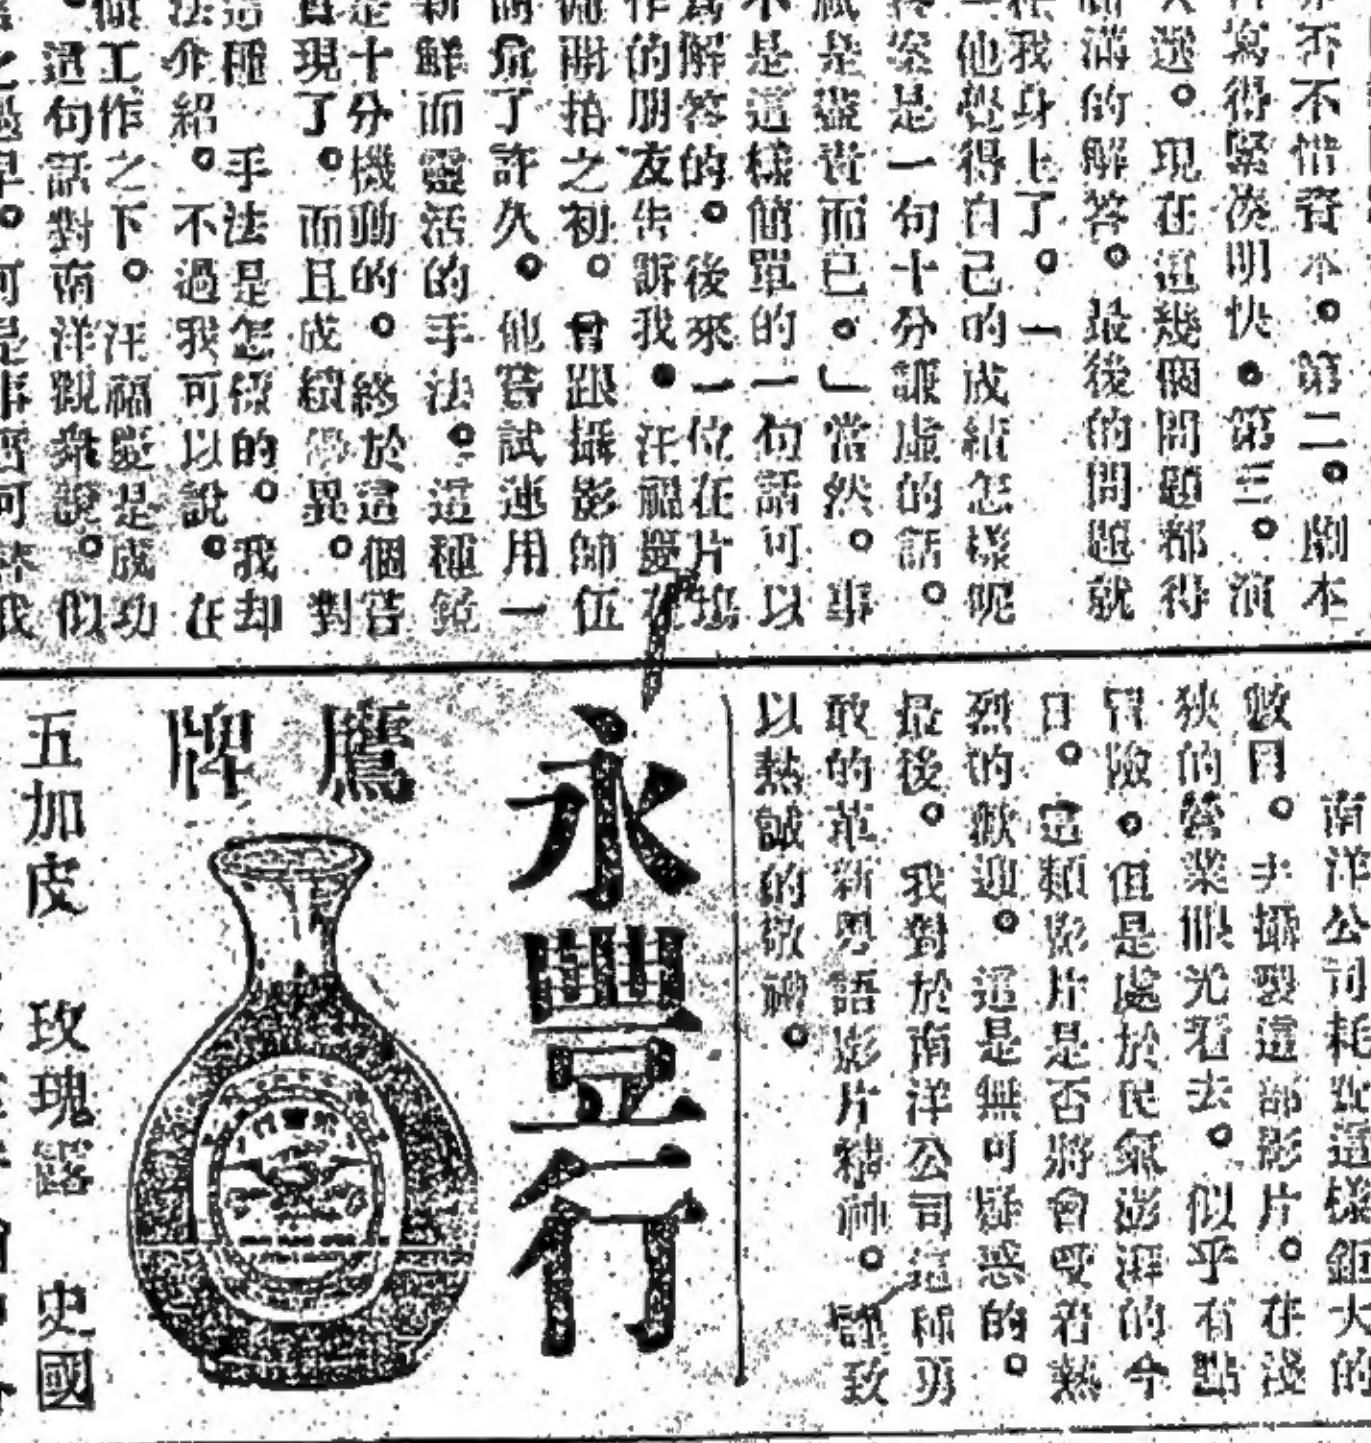 不惜資本。第二。劇本
寫得緊湊明快。第三。演
選。現在這幾個問題都得
滿的解答。最後的問題就
我身上了。一
他覺得自己的成績怎樣呢
案是一句十分謙虛的話。
是盡責而已。」當然。事
是這樣簡單的一句話可以
解答的。後來一位在片場
的朋友告訴我。汪福慶在
開拍之初。曾跟攝影師伍
了許久。他嘗試運用一
新鮮而靈活的手法。這種鏡
是十分機動的。終於這個答
現了。而且成績優異。對
這種 手法是怎樣的。我却
法介紹。不過我可以說。在
工作之下。汪福慶是成功
這句話對南洋觀衆說。似
南洋公司耗到這樣鉅大的
數目。去攝製這部影片。在淺
狹的營業眼光看去。似乎有點
冒險。但是處於民氣澎湃的今
日。這類影片是否將會受着熱
烈的歡迎。這是無可疑惑的。
最後。我對於南洋公司這種勇
敢的革新粵語影片精神。謹致
以熱誠的敬禮。
永豐行
鷹牌
五加皮 玫瑰露 史國